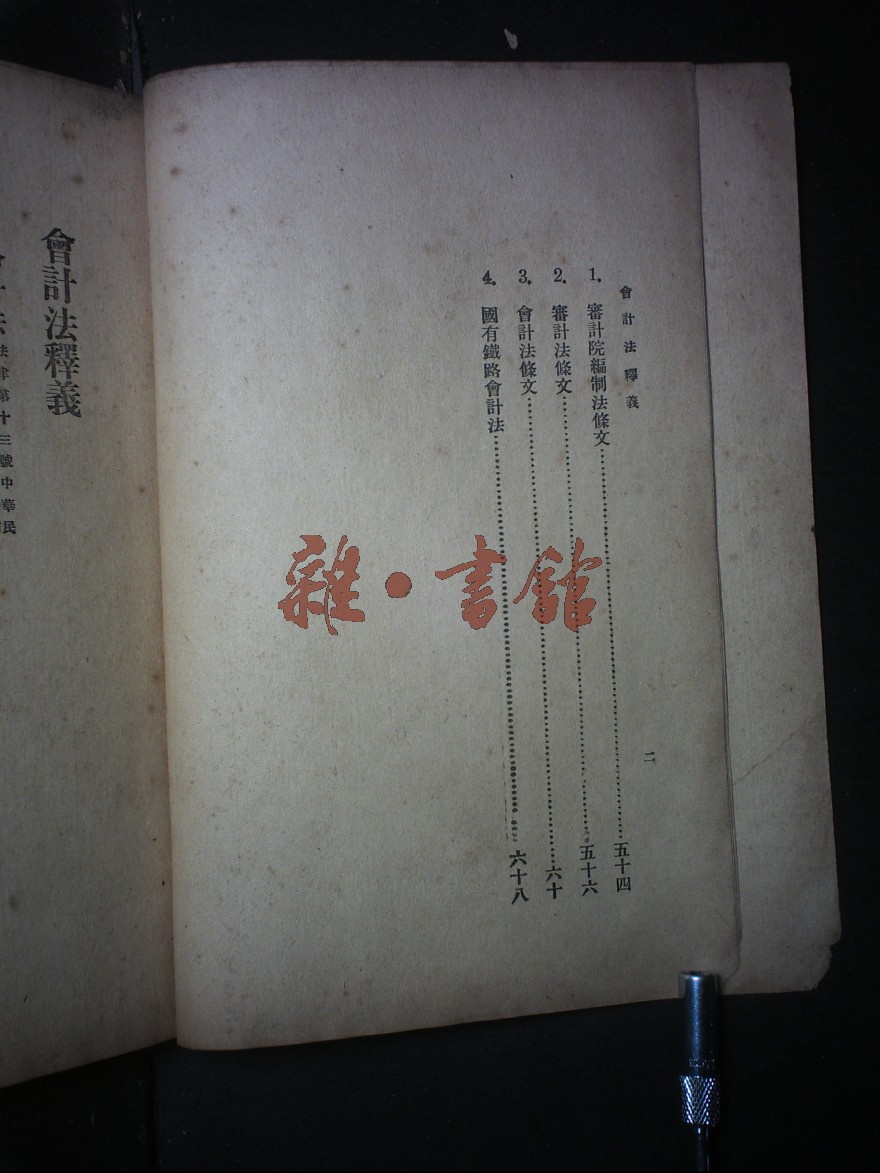 會計法釋義
1. 審計院編制法條文……五十四
2. 審計法條文……五十六
3. 會計法條文……六十
4. 國有鐵路會計法……六十八
二
雜·書館
會計法釋義
法律第十三號中華民